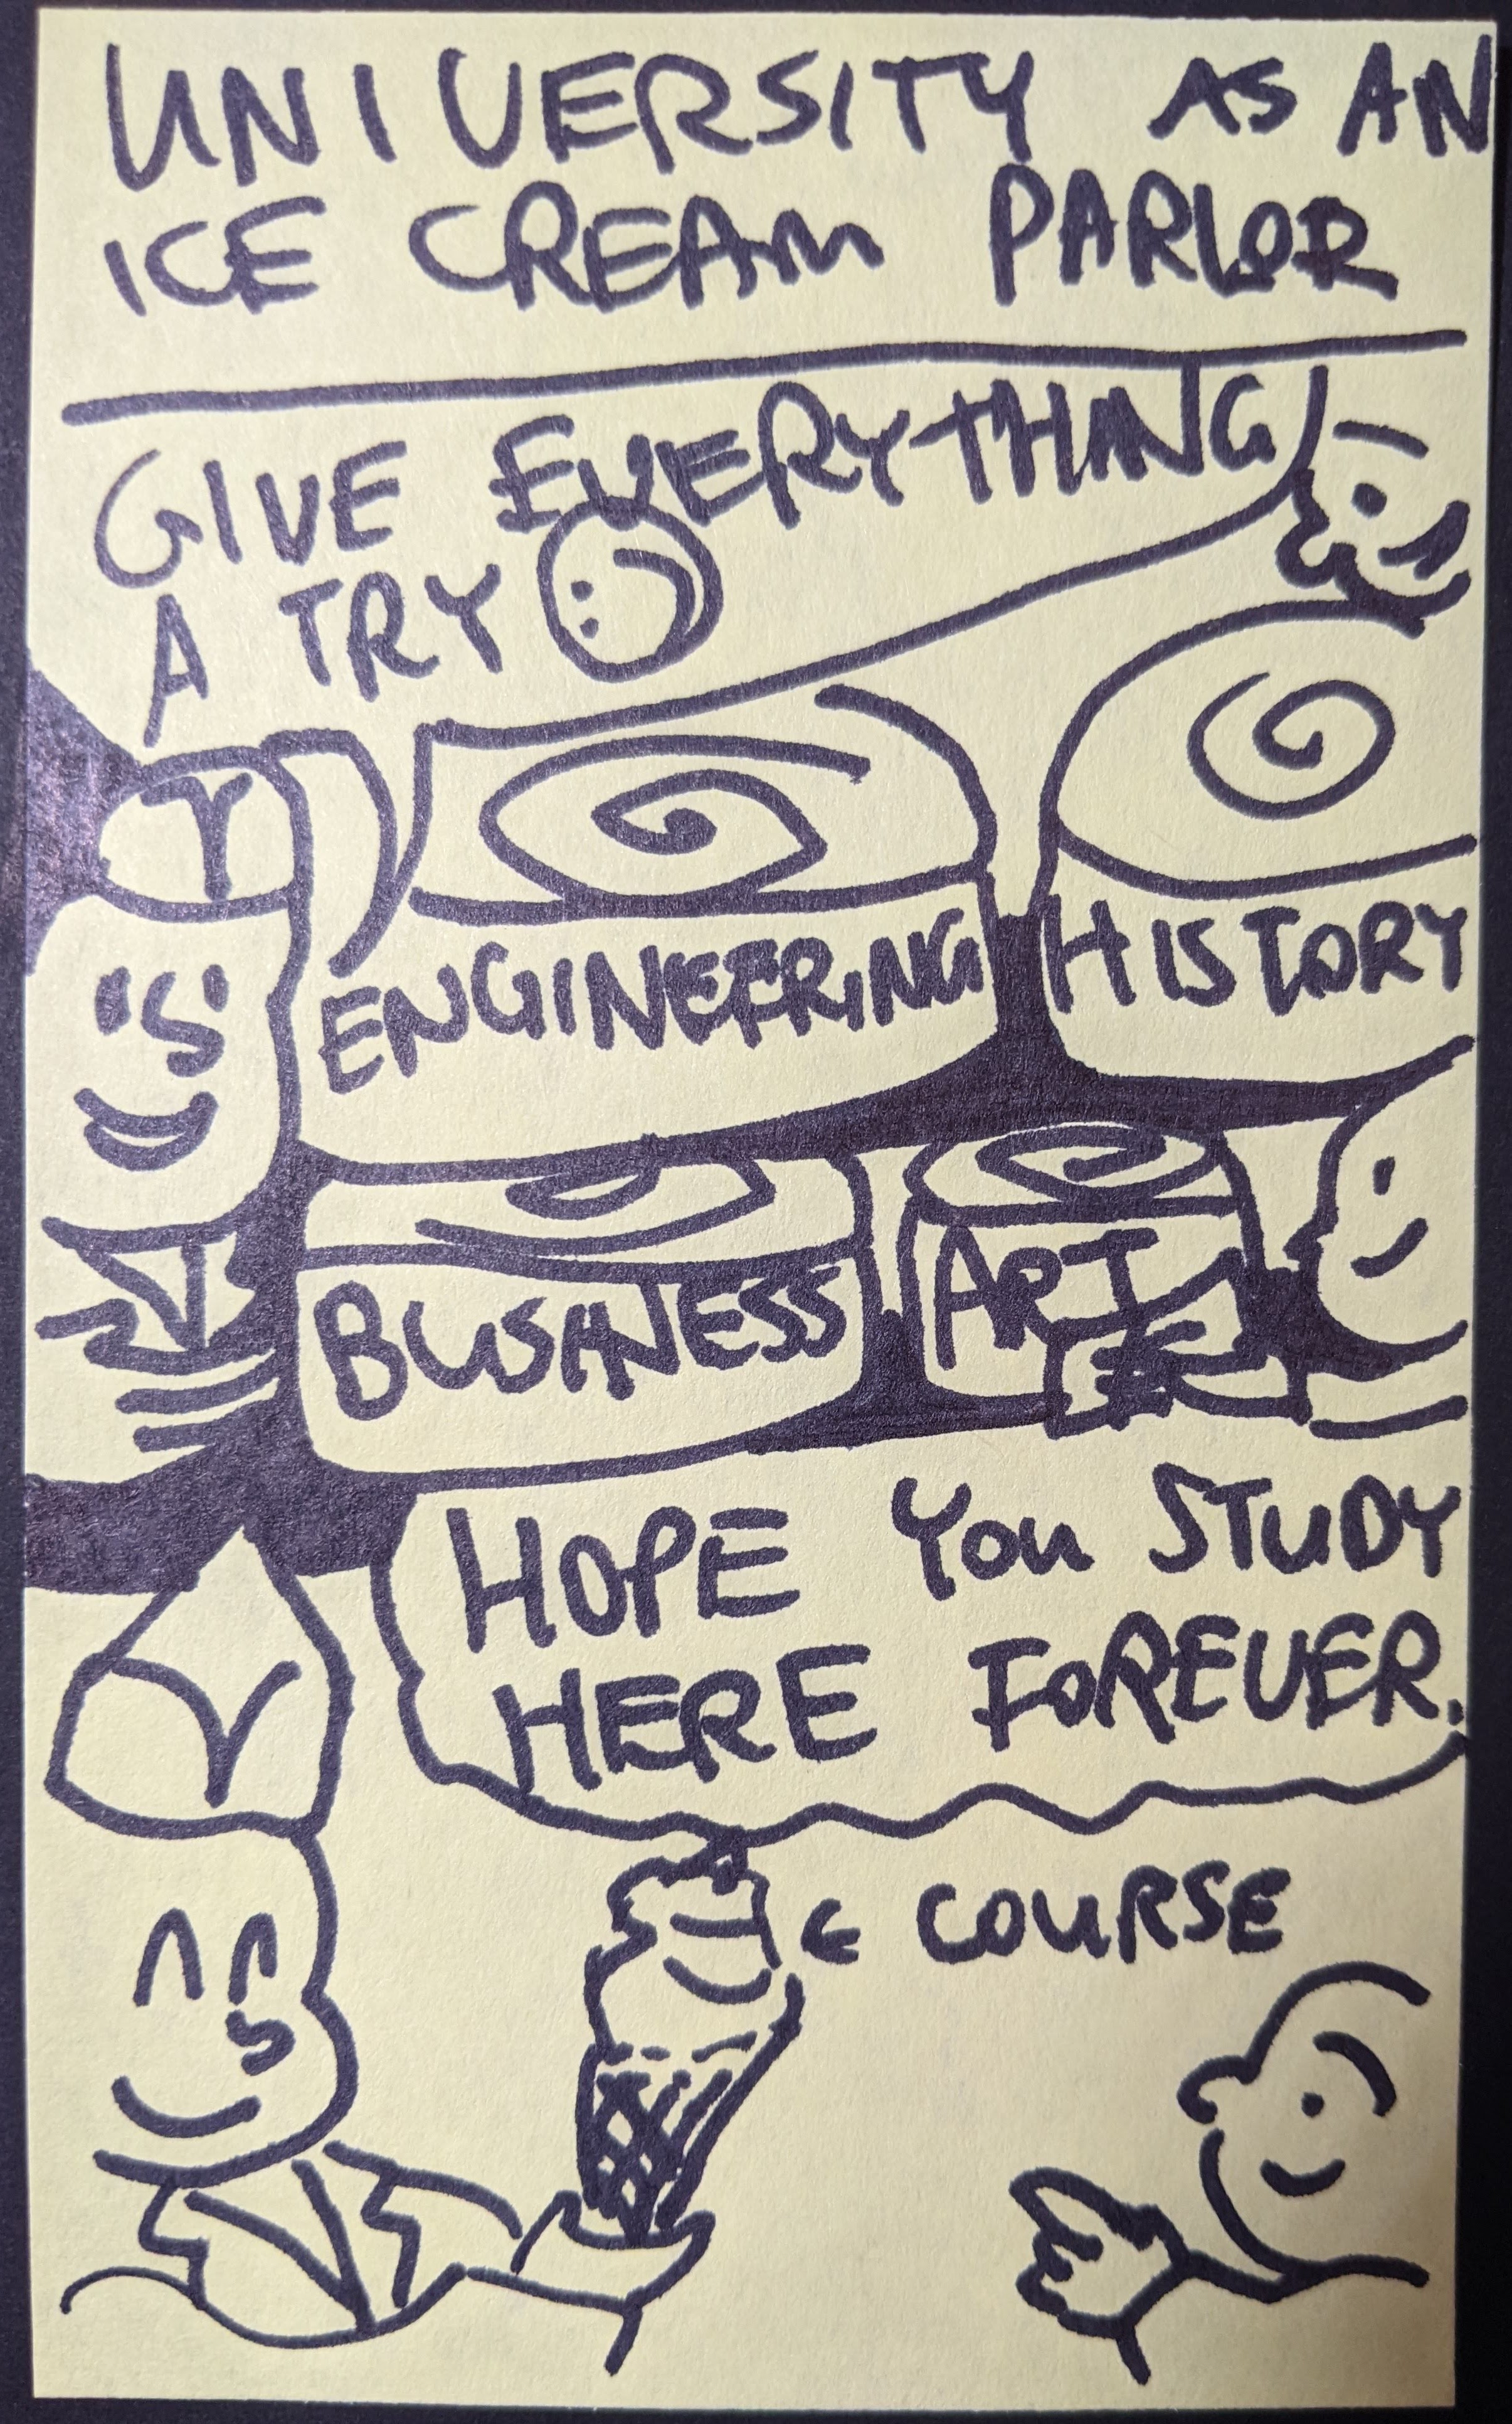 UNIVERSITY AS AN
ICE CREAM PARLOR
GIVE EVERYTHING
A TRY
ENGINEERING
HISTORY
BUSINESS
ART
HOPE YOU STUDY
HERE FOREVER.
COURSE